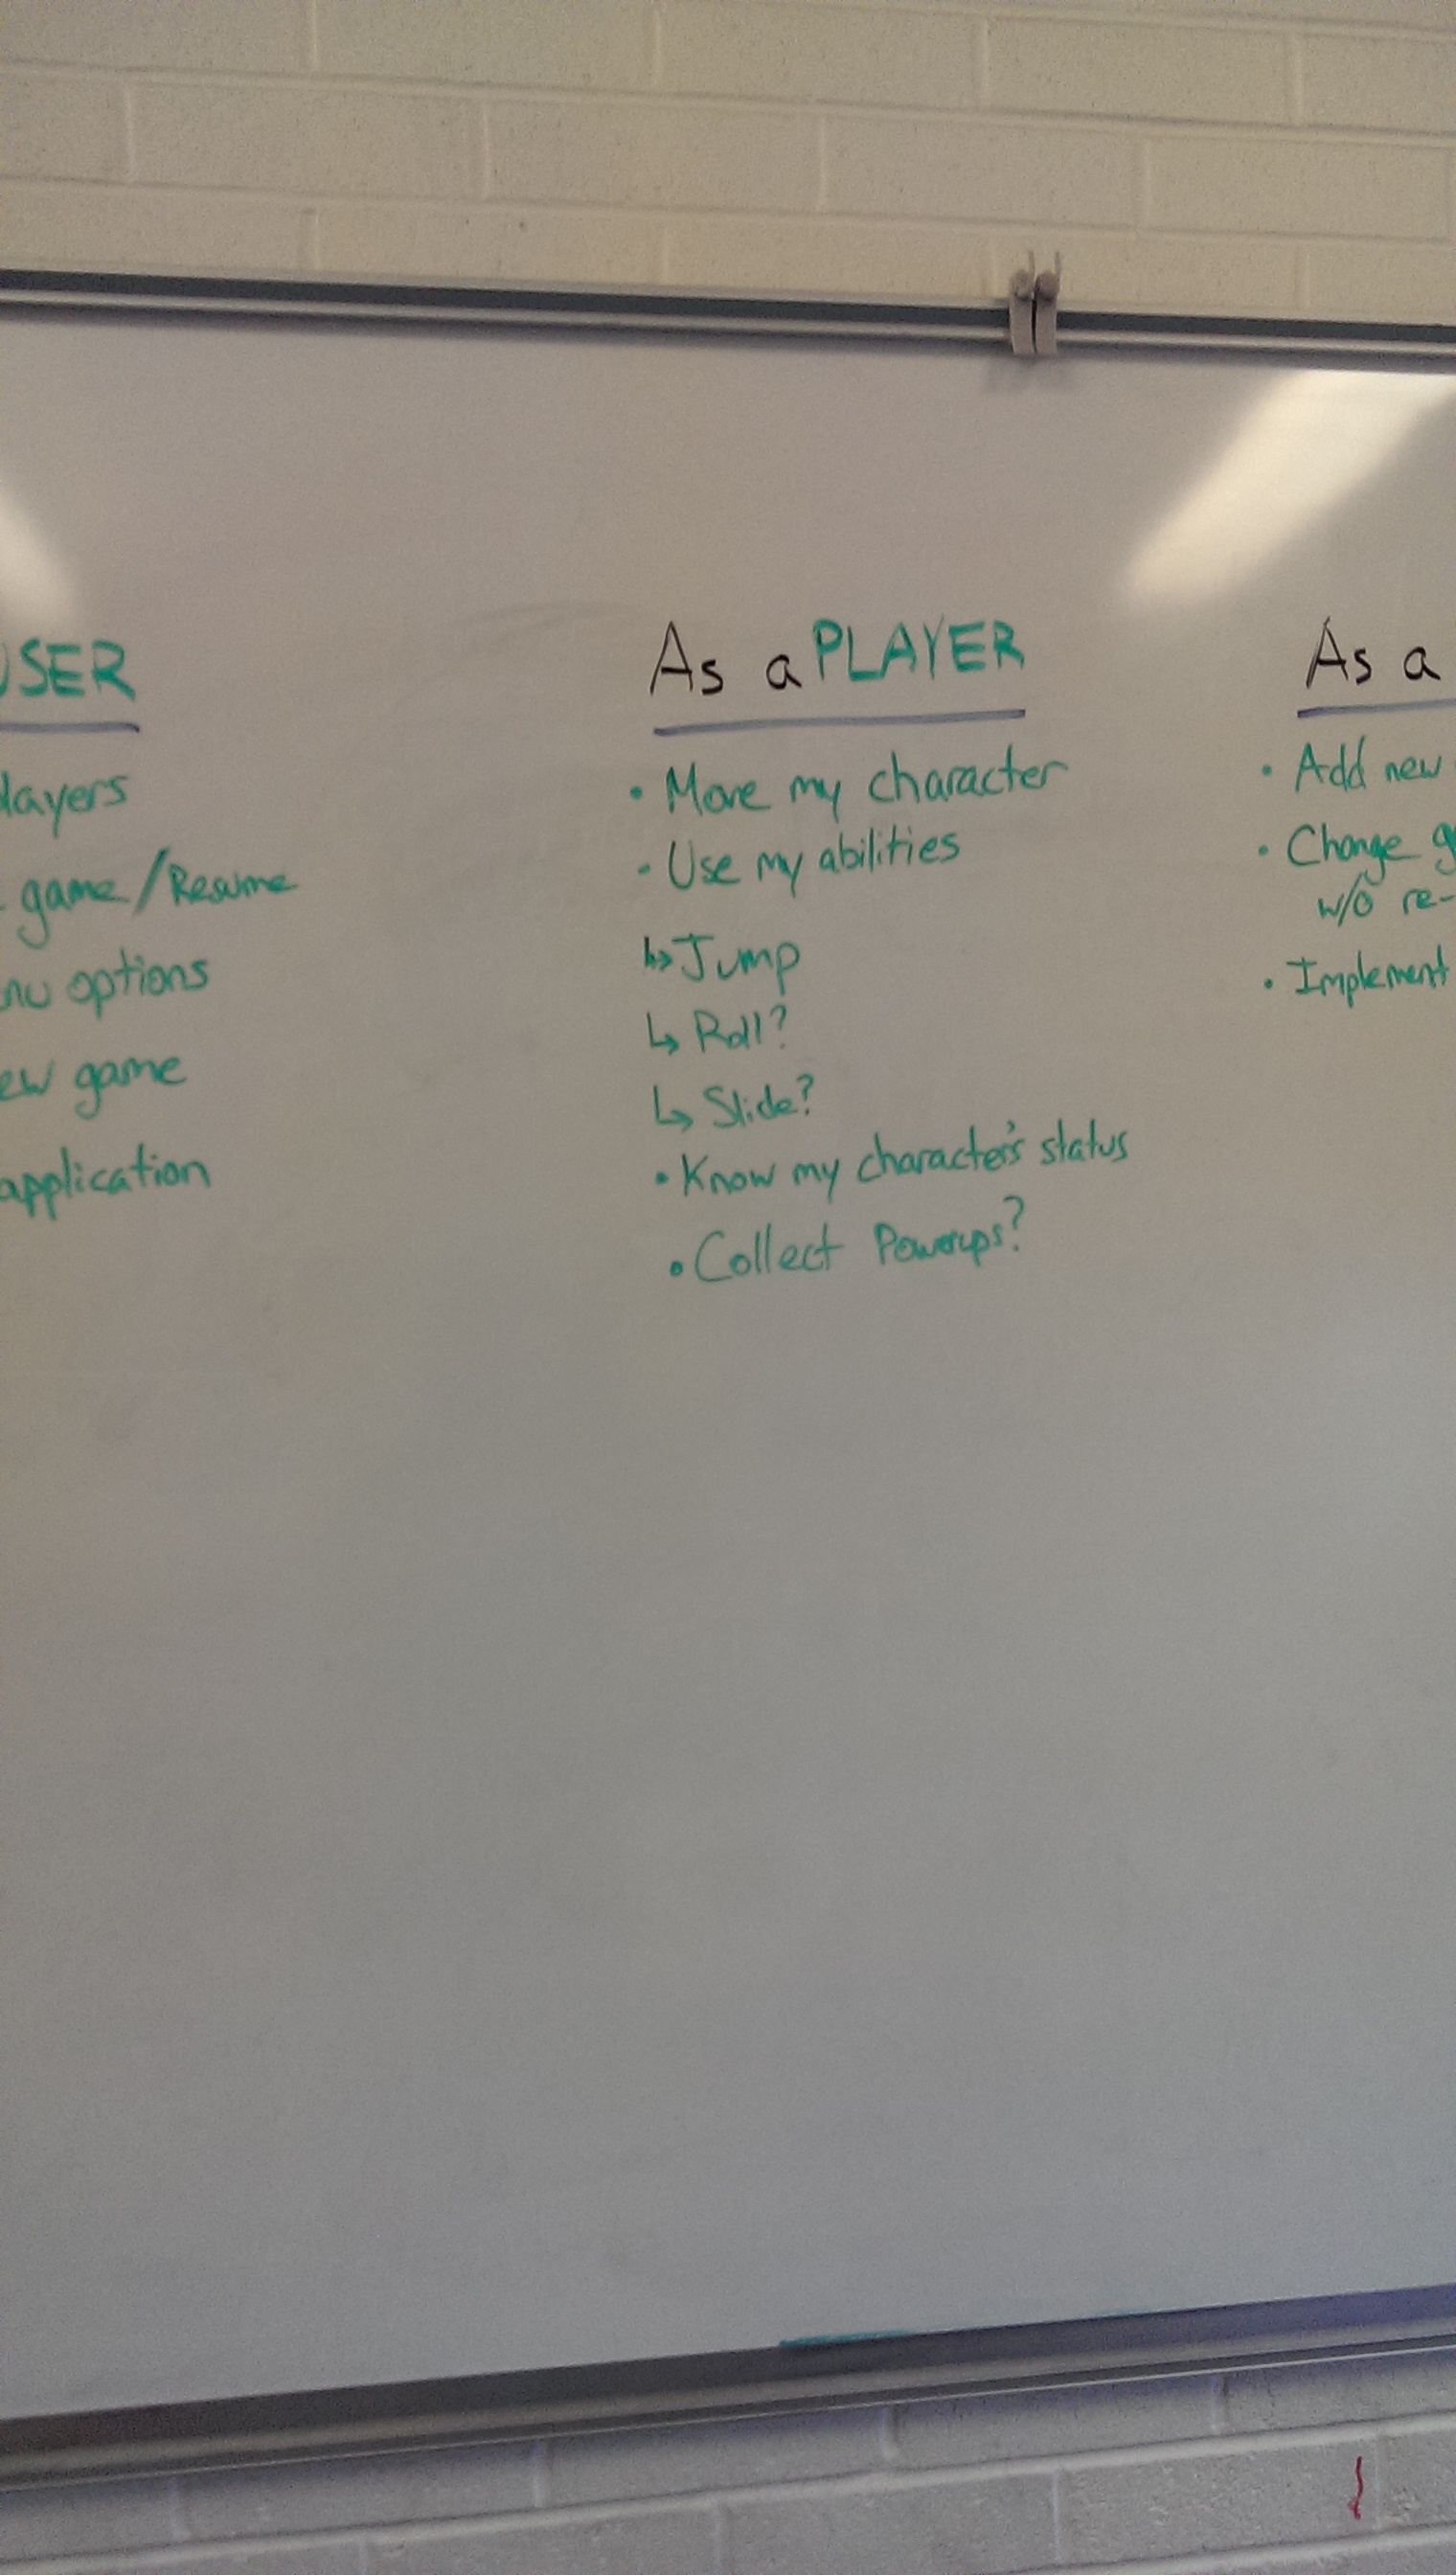 USER
layers
game/Resume
nu options
ew game
application
As a PLAYER
• Move my character
• Use my abilities
↳ Jump
↳ Roll?
↳ Slide?
• Know my character's status
• Collect Powerups?
As a
• Add new
• Change g
w/o re-
• Implement